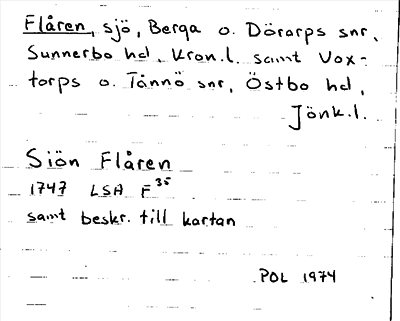 Flåren, sjö, Berga o. Dörarps snr,
Sunnerbo hd, Kron.l. samt Vox-
torps o. Tånnö snr, Östbo hd,
Jönk.l.
Siön Flåren
1747 LSA F35
samt beskr. till kartan
POL 1974